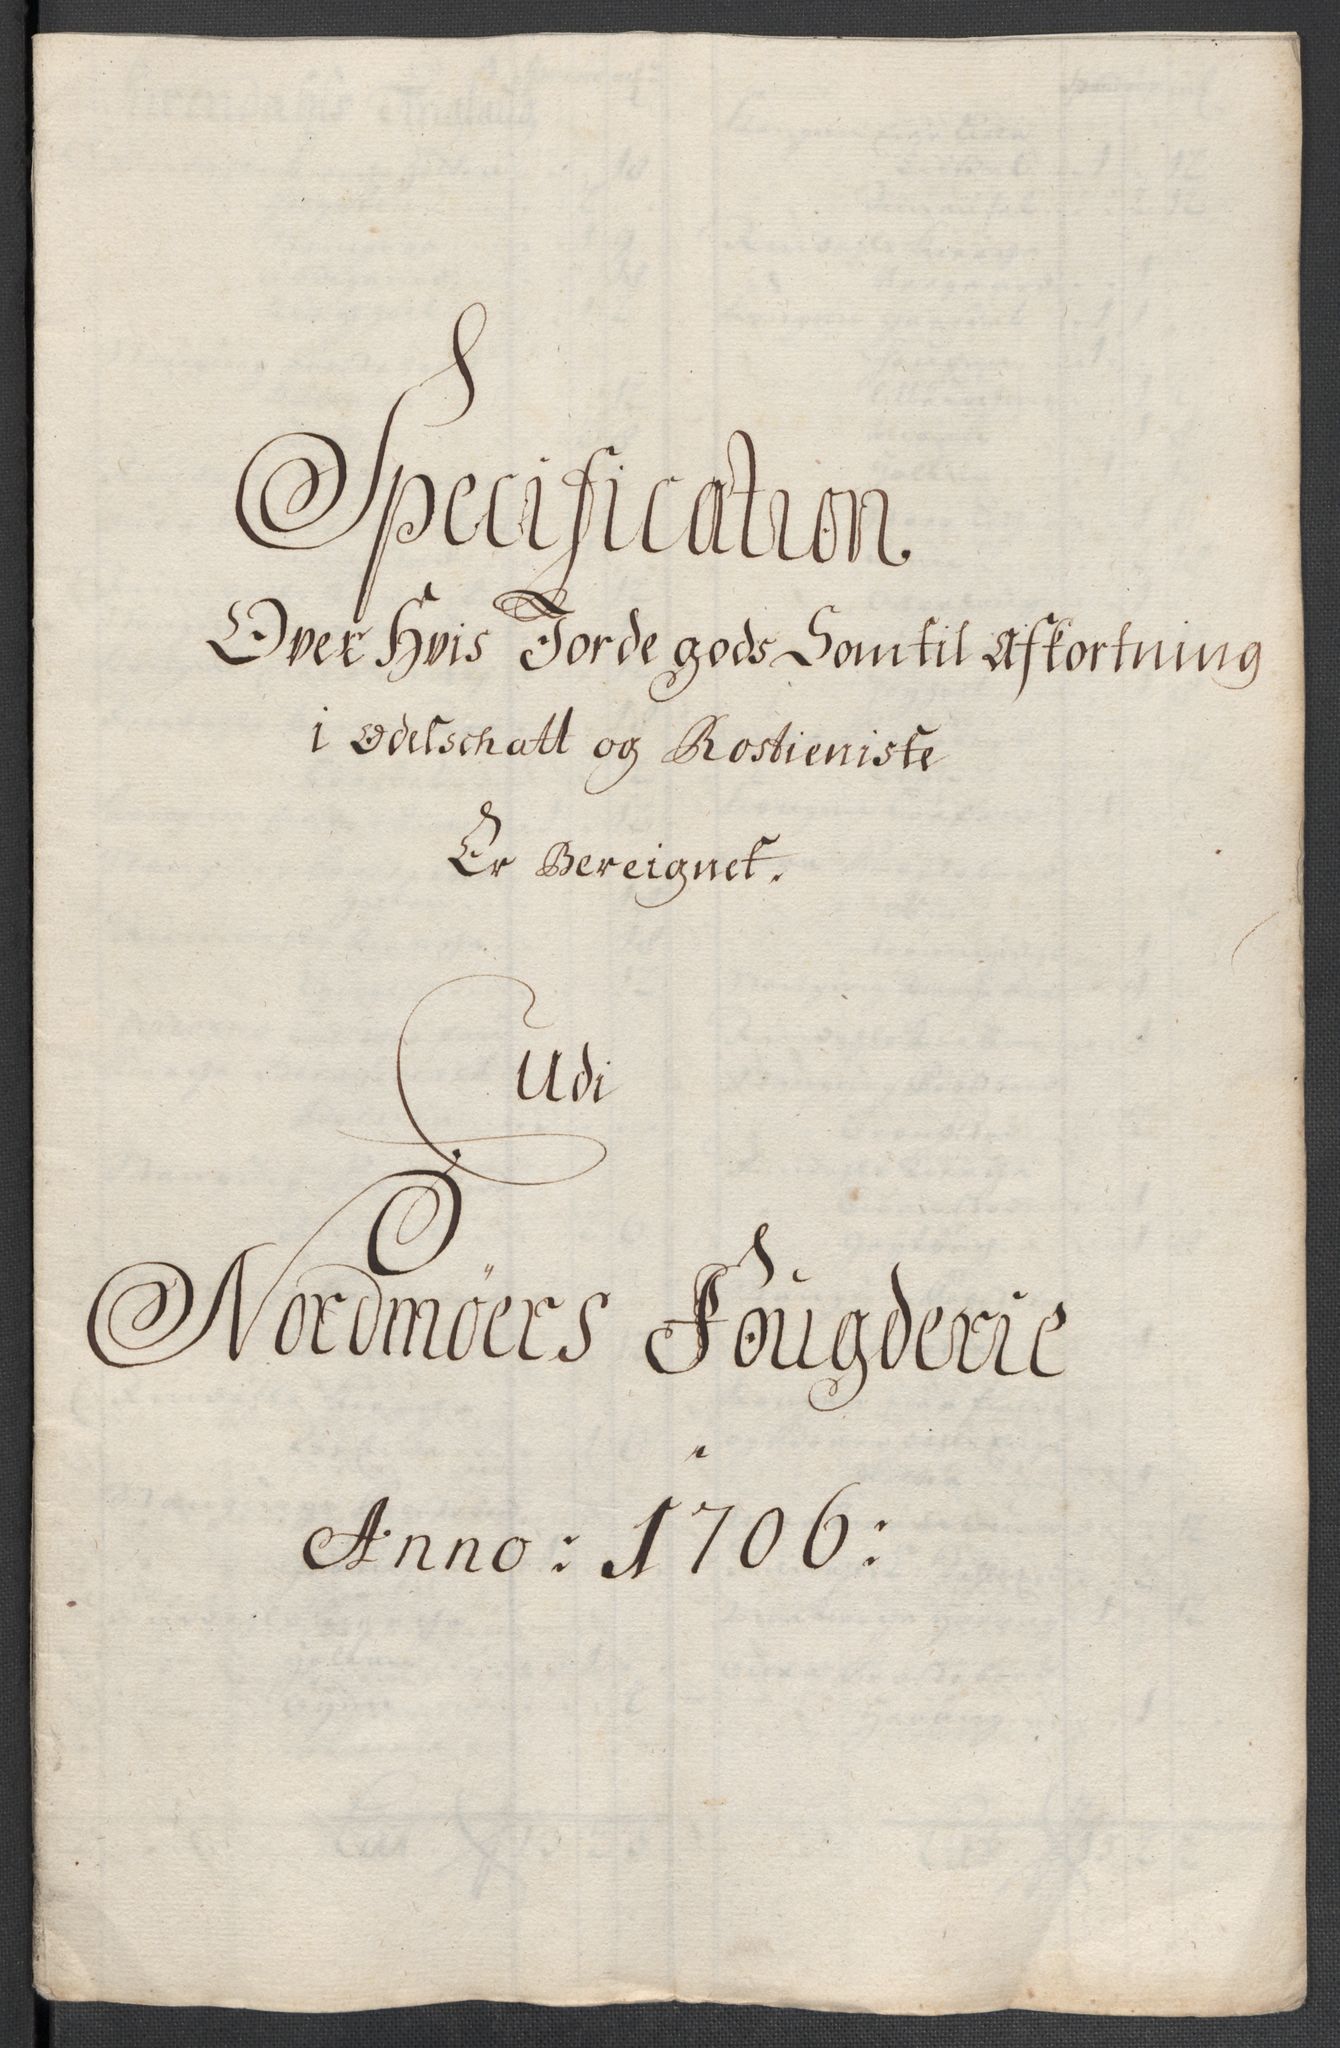 Specification
Over Hvis Jorde gods Som til Afkortning
i Odelschatt og Rostieniste
Er Bereignet.
Udi
Nordmöers Fougderie
Anno: 1706: